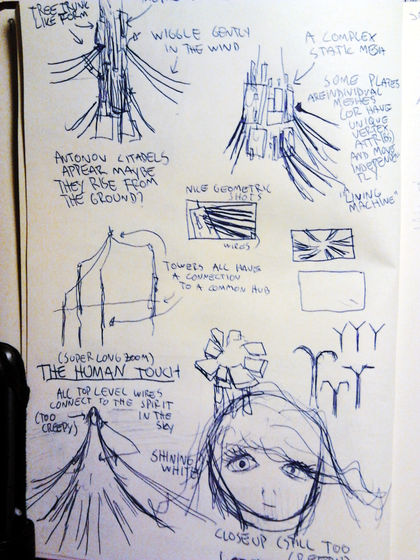 TREE TRUNK
LIKE FORM
WIGGLE GENTLY
IN THE WIND
A COMPLEX
STATIC MESH
SOME PLATES
ARE INDIVIDUAL
MESHES
(OR HAVE
UNIQUE
VERTEX
ATTRIB)
AND MOVE
INDEPENDE
TLY
"LIVING
MACHINE"
ANTONOV CITADELS
APPEAR MAYBE
THEY RISE FROM
THE GROUND?
NICE GEOMETRIC
SHOTS
WIRES
TOWERS ALL HAVE
A CONNECTION
TO A COMMON HUB
(SUPER LONG ZOOM)
THE HUMAN TOUCH
ALL TOP LEVEL WIRES
CONNECT TO THE SPIRIT
IN THE
SKY
(TOO
CREEPY)
SHINING
WHITE
CLOSEUP (STILL TOO